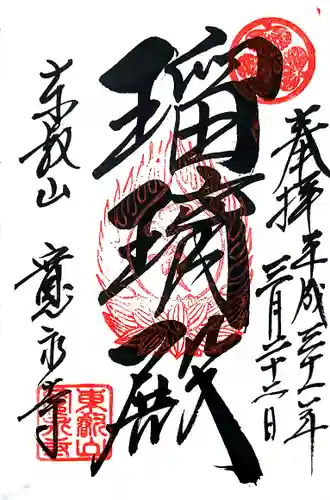 奉拝 平成三十一年
三月二十六日
瑠璃殿
東叡山 寛永寺
東叡山
寛永寺